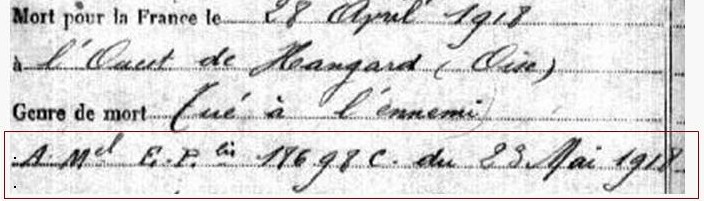 Mort pour la France le 28 April 1918
à l'Ouest de Hangard (Oise)
Genre de mort Tué à l'ennemi
A. Mel E.P. 18698 C. du 23 Mai 1918